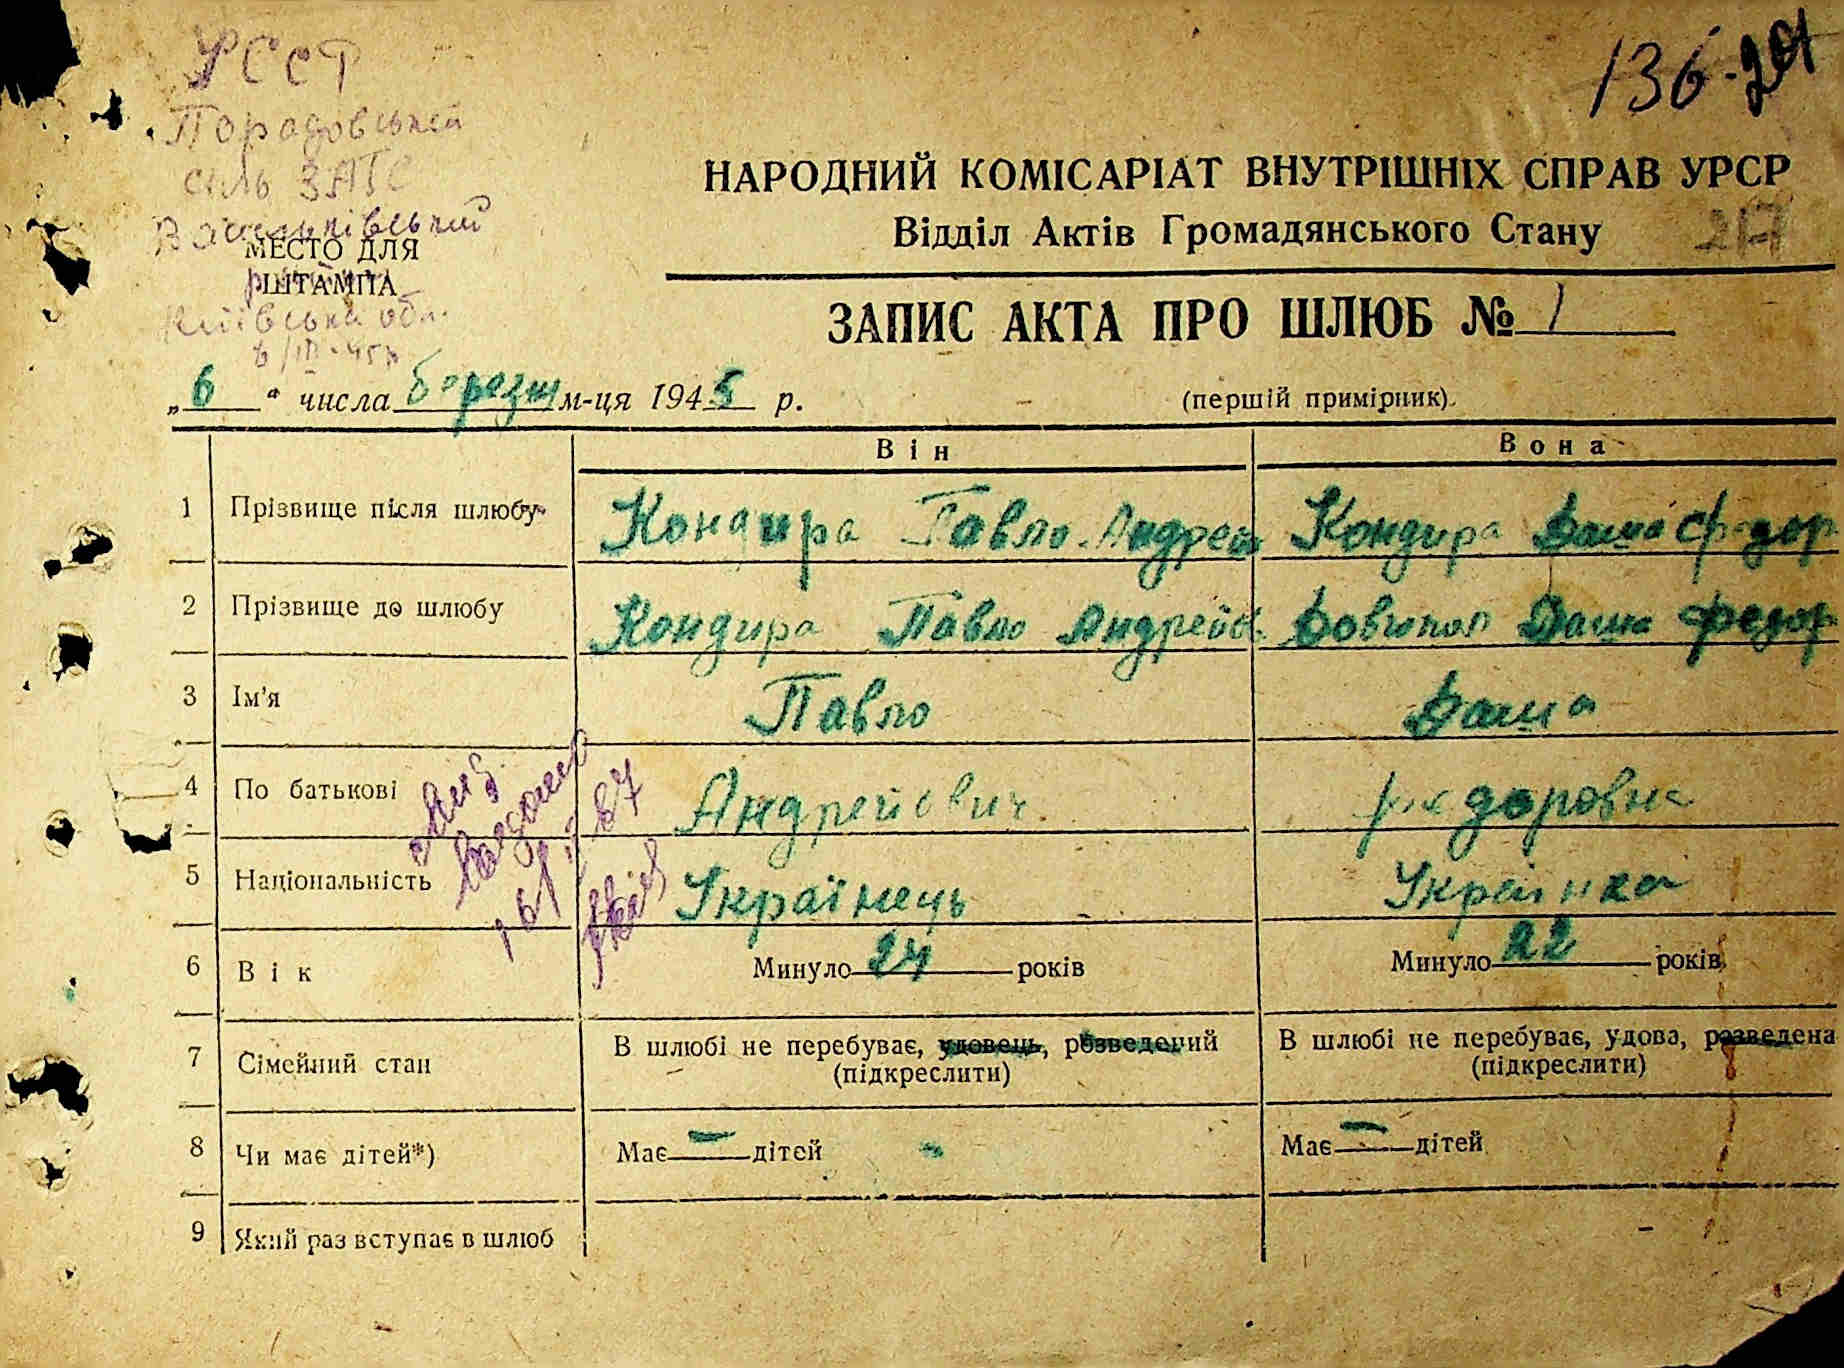 УССР
сіль ЗАГС
Васильківський
МЕСТО ДЛЯ
ШТАМПА
Київська обл.
6/III-45р
136-
217
НАРОДНИЙ КОМІСАРІАТ ВНУТРІШНІХ СПРАВ УРСР
Відділ Актів Громадянського Стану
ЗАПИС АКТА ПРО ШЛЮБ № 1
„6“ числа березня м-ця 1945 р. (першій примірник).
Він Вона
1 Прізвище після шлюбу Кондира Павло Андрей Кондира Даша Федор
2 Прізвище до шлюбу Кондира Павло Андрейов Даша Федор
3 Ім'я Павло Даша
4 По батькові Андрейович Федоровна
5 Національність Українець Українка
6 Вік Минуло 24 років Минуло 22 років
7 Сімейний стан В шлюбі не перебуває, удовець, розведений В шлюбі не перебуває, удова, розведена
(підкреслити) (підкреслити)
8 Чи має дітей*) Має — дітей Має — дітей
9 Який раз вступає в шлюб